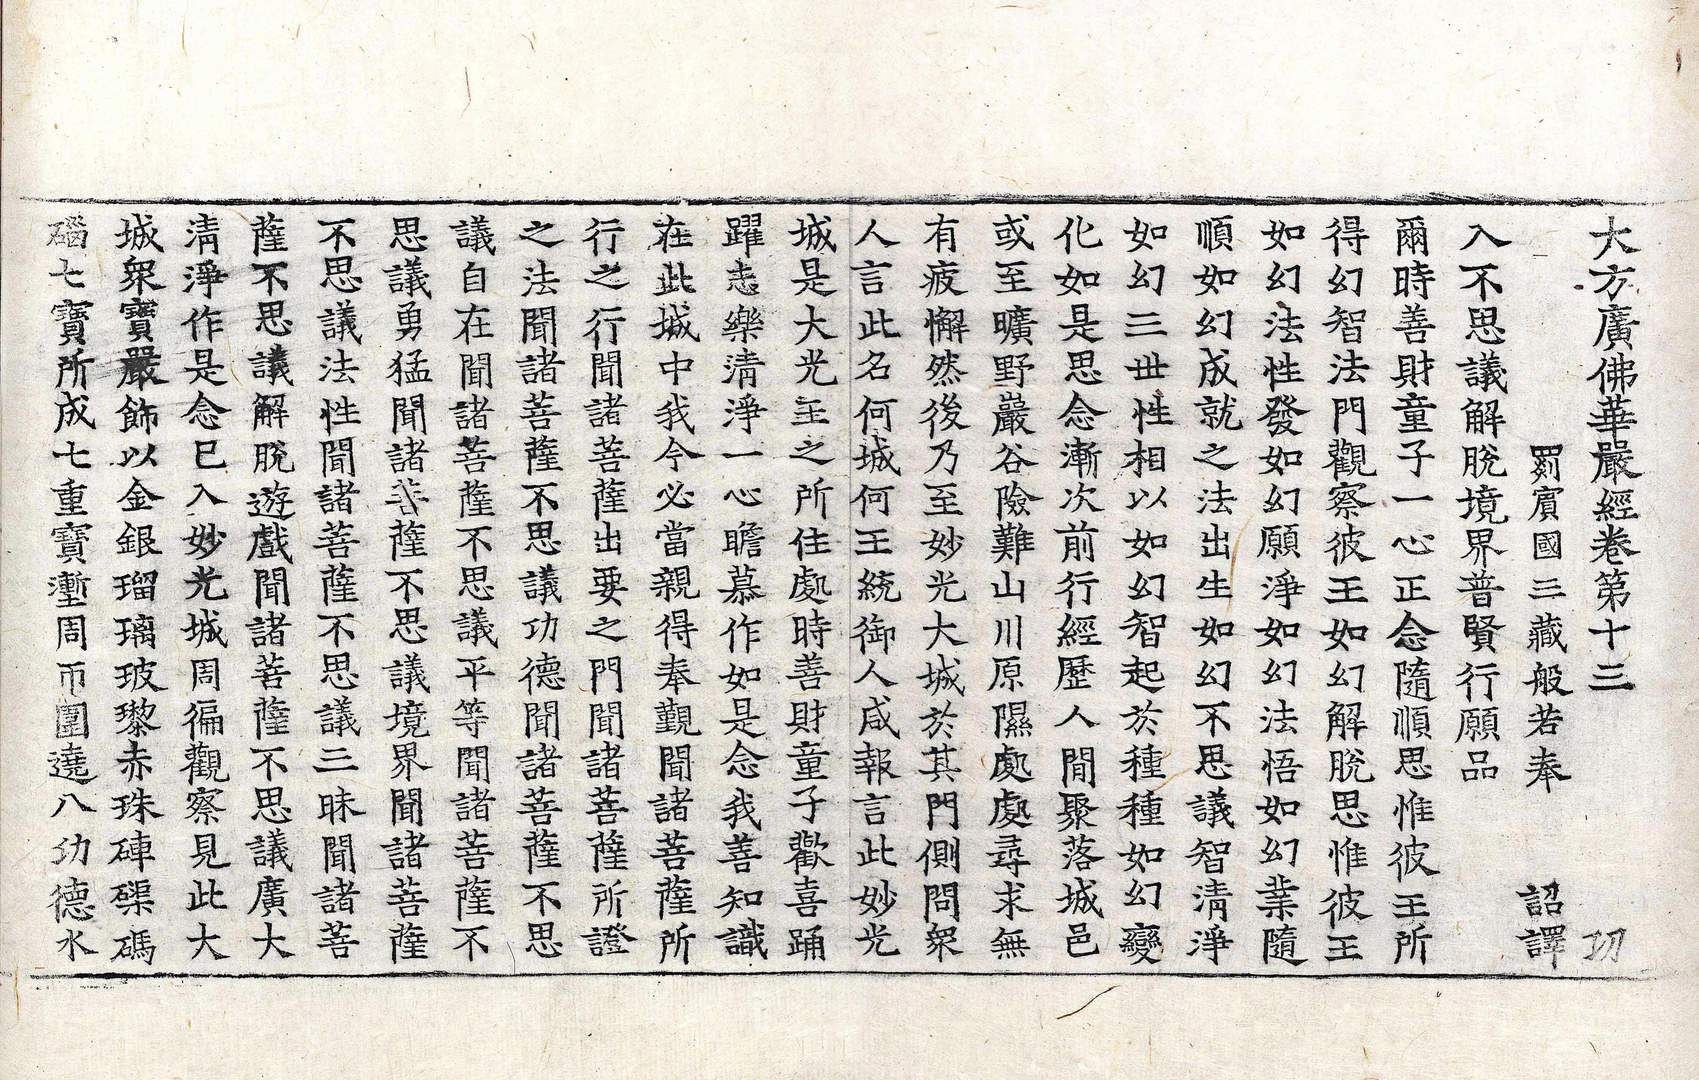 大方廣佛華嚴經卷第十三 㓛
罽賓國三藏般若奉 詔譯
入不思議解脫境界普賢行願品
爾時善財童子一心正念隨順思惟彼王所
得幻智法門觀察彼王如幻解脫思惟彼王
如幻法性發如幻願淨如幻法悟如幻業隨
順如幻成就之法出生如幻不思議智清淨
如幻三世性相以如幻智起於種種如幻變
化如是思念漸次前行經歷人間聚落城邑
或至曠野巖谷險難山川原隰處處尋求無
有疲懈然後乃至妙光大城於其門側問衆
人言此名何城何王統御人咸報言此妙光
城是大光王之所住處時善財童子歡喜踊
躍志樂清淨一心瞻慕作如是念我善知識
在此城中我今必當親得奉覲聞諸菩薩所
行之行聞諸菩薩出要之門聞諸菩薩所證
之法聞諸菩薩不思議功德聞諸菩薩不思
議自在聞諸菩薩不思議平等聞諸菩薩不
思議勇猛聞諸菩薩不思議境界聞諸菩薩
不思議法性聞諸菩薩不思議三昧聞諸菩
薩不思議解脫遊戲聞諸菩薩不思議廣大
清淨作是念已入妙光城周徧觀察見此大
城衆寶嚴飾以金銀瑠璃玻瓈赤珠硨磲碼
碯七寶所成七重寶塹周帀圍遶八功德水